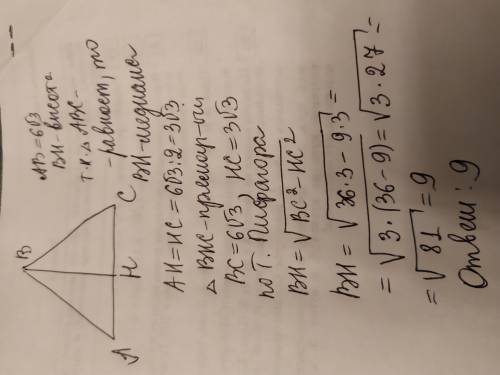 AB=6√3
BH-высота
т.к. △ ABC-
-равност, то
BH-медиана
B
A
H
C
AH=HC=6√3:2=3√3
△ BHC-прямоуг-ый
BC=6√3, HC=3√3
по Т. Пифагора
BH=√BC²-HC²
BH=√36·3-9·3=
=√3·(36-9)=√3·27=
=√81=9
Ответ: 9